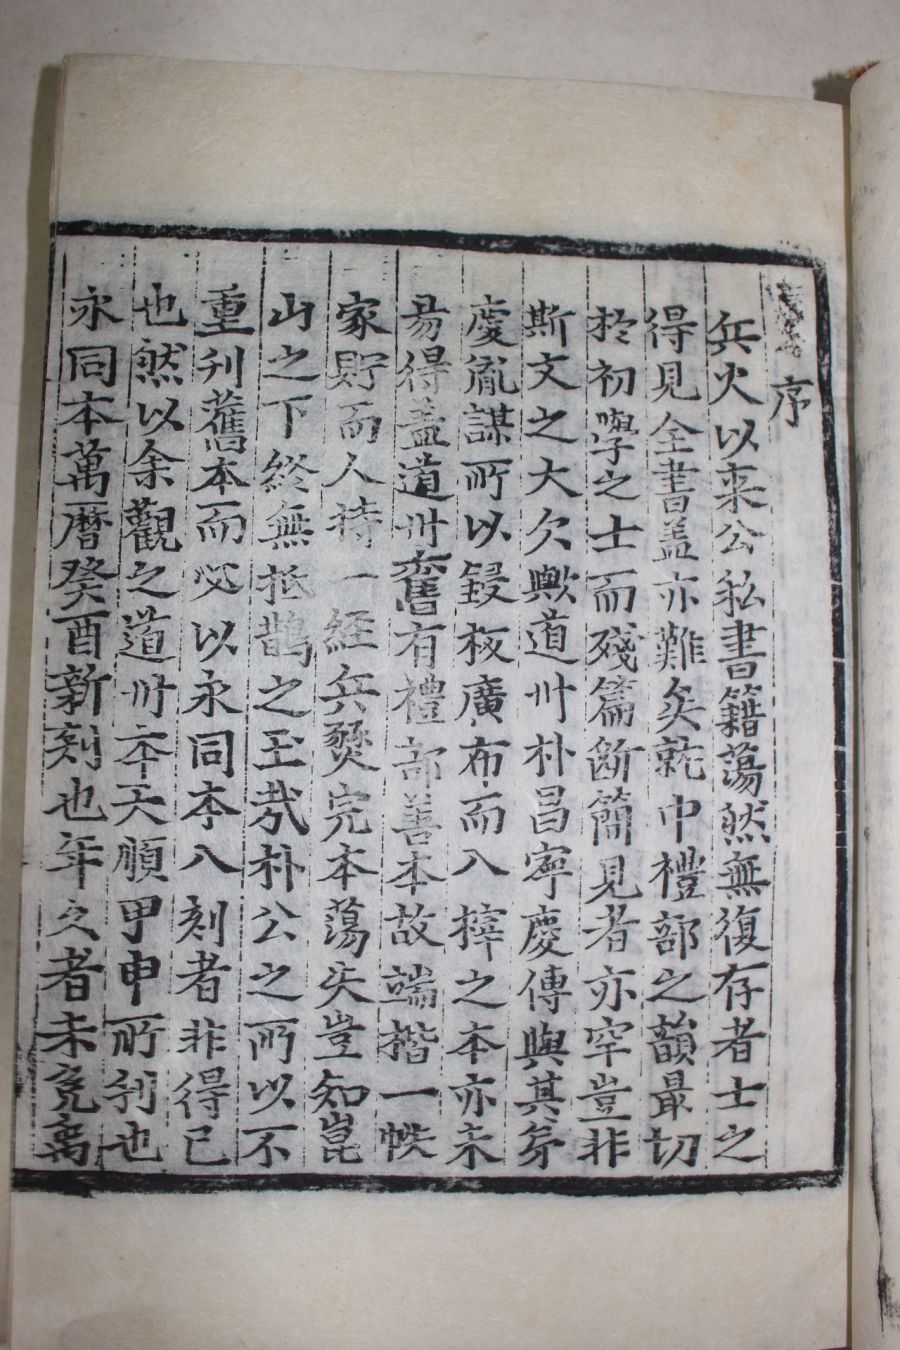 序
兵火以来公私書籍蕩然無復存者士之
得見全書盖亦難矣就中禮部之韻最切
扵初學之士而殘篇断簡見者亦罕豈非
斯文之大欠歟道州朴昌寧慶傳與其弟
慶胤謀所以鋟板廣布而入梓之本亦未
昜得盖道州舊有禮部善本故端楷一帙
家貯而人持一經兵燹完本蕩失豈知崑
山之下終無抵鵲之玉㢤朴公之所以不
重刋舊本而必以永同本入刻者非得已
也然以余觀之道州本天順甲申所刋也
永同本萬曆癸酉新刻也年久者未免离